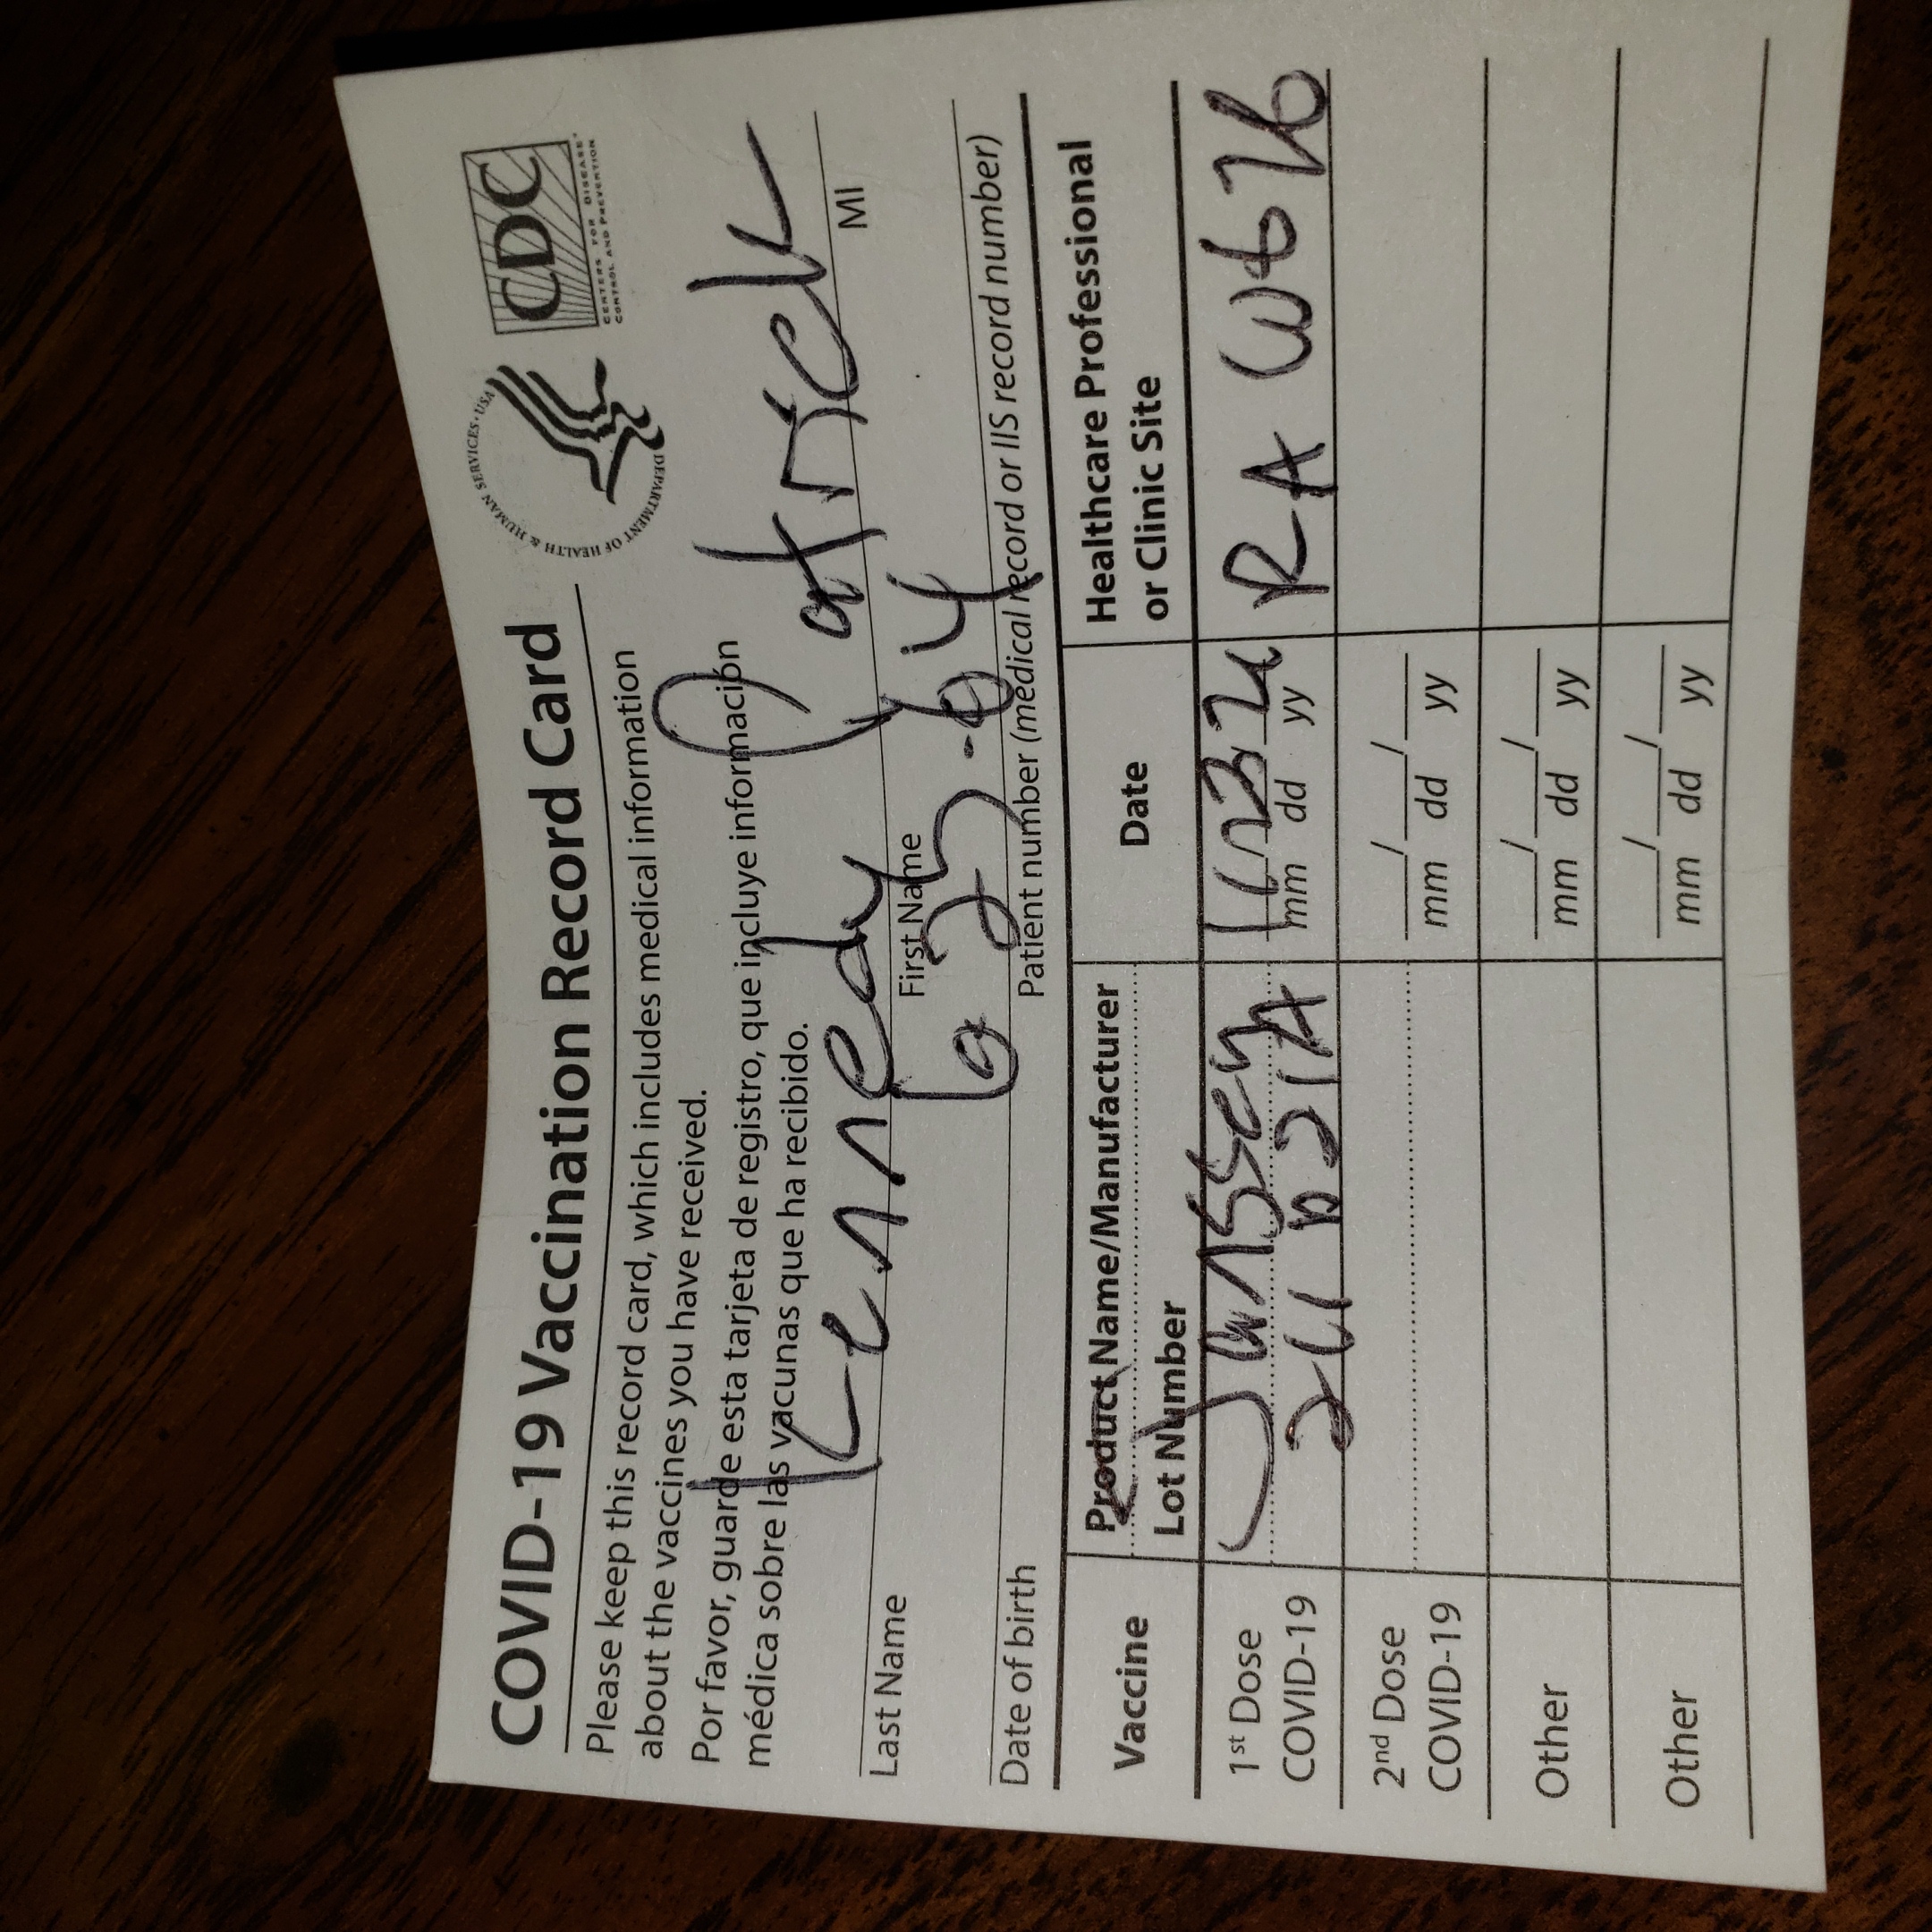 COVID-19 Vaccination Record Card
DEPARTMENT OF HEALTH & HUMAN SERVICES · USA
CDC
CENTERS FOR DISEASE
CONTROL AND PREVENTION
Please keep this record card, which includes medical information
about the vaccines you have received.
Por favor, guarde esta tarjeta de registro, que incluye información
médica sobre las vacunas que ha recibido.
Kennedy Patrick
Last Name First Name MI
Date of birth Patient number (medical record or IIS record number)
Vaccine Product Name/Manufacturer Date Healthcare Professional
Lot Number or Clinic Site
1st Dose Janssen RA
COVID-19 mm dd yy
2nd Dose / /
COVID-19 mm dd yy
Other / /
mm dd yy
Other / /
mm dd yy